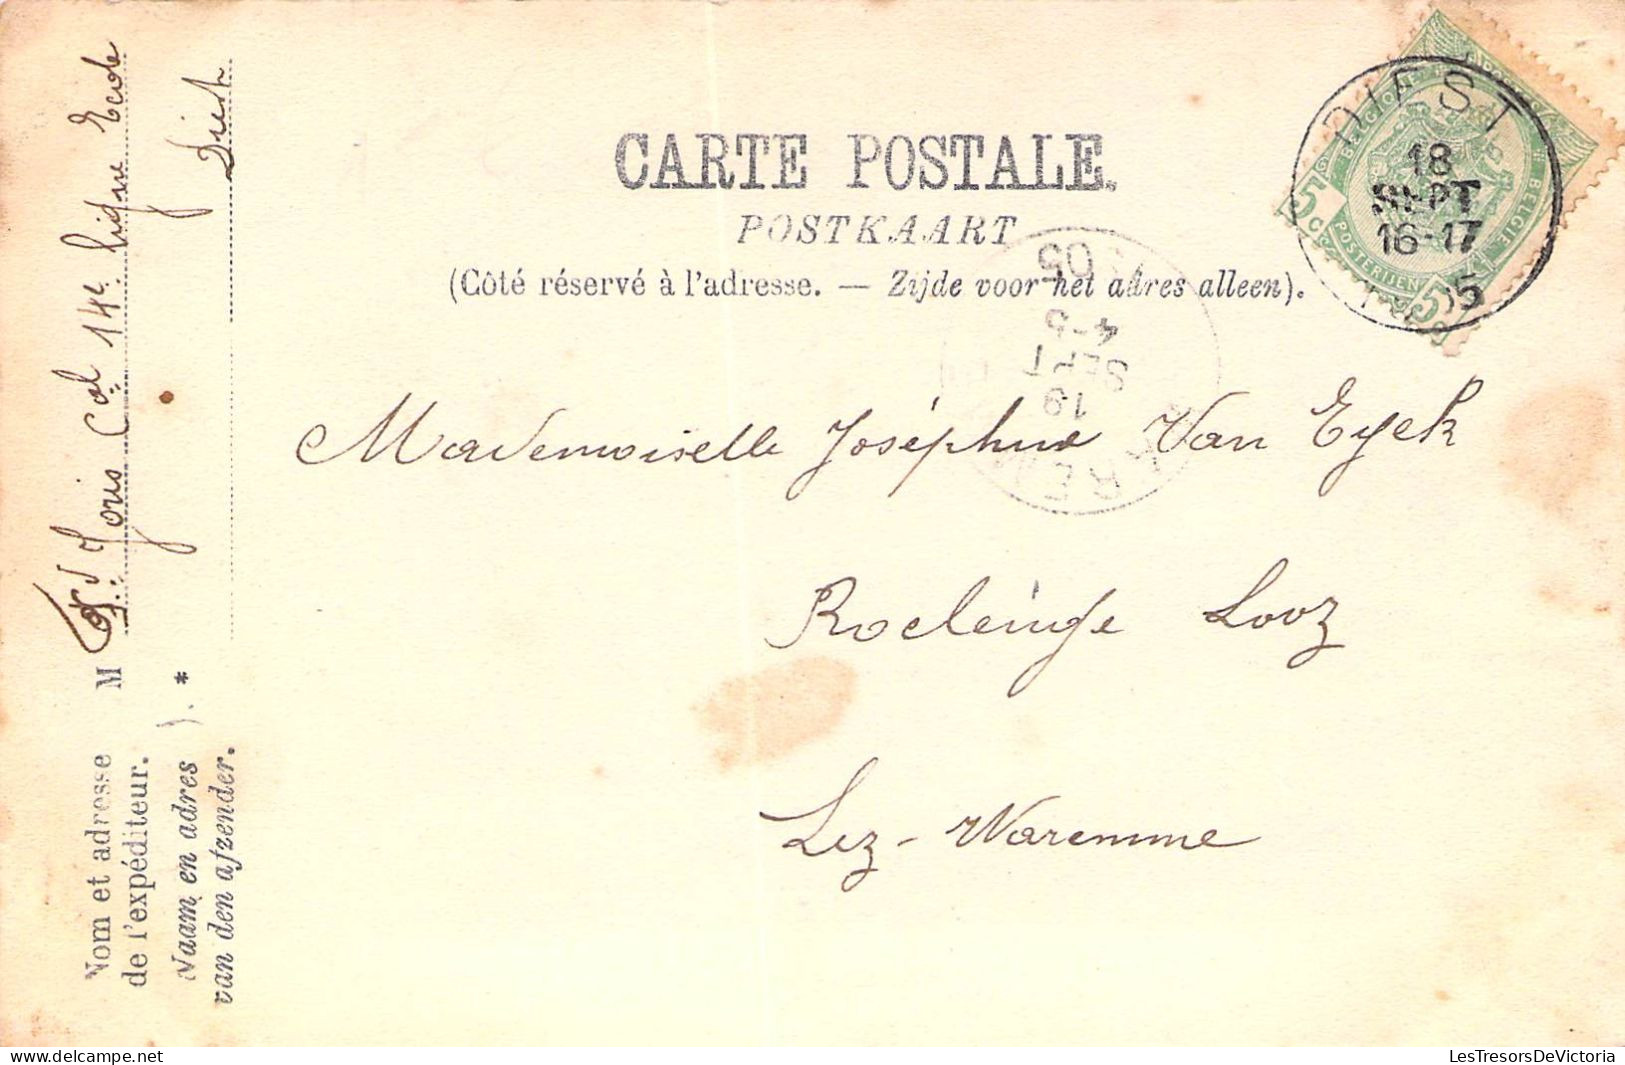 CARTE POSTALE.
POSTKAART
(Côté réservé à l'adresse. — Zijde voor het adres alleen).
DIEST
18
SEPT
16-17
05
BELGIQUE
BELGIË
POSTERIJEN
5 C
5
05
4-5
SEPT
19
Mademoiselle Joséphine Van Eyck
Roclenge Looz
Lez-Waremme
Nom et adresse
de l'expéditeur.
Naam en adres
van den afzender.
M
Joris Cal 14e ligne Ecole
Diest
LesTresorsDeVictoria
LesTresorsDeVictoria (c) delcampe.net